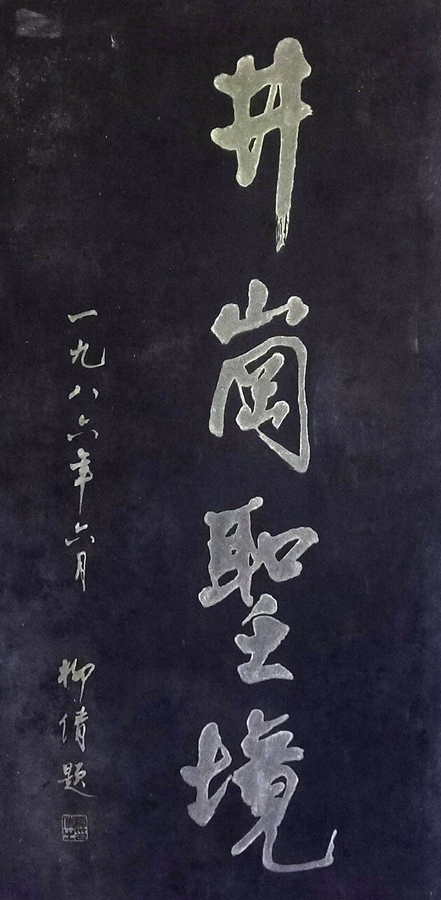 井崗聖境
一九八六年六月
柳倩題